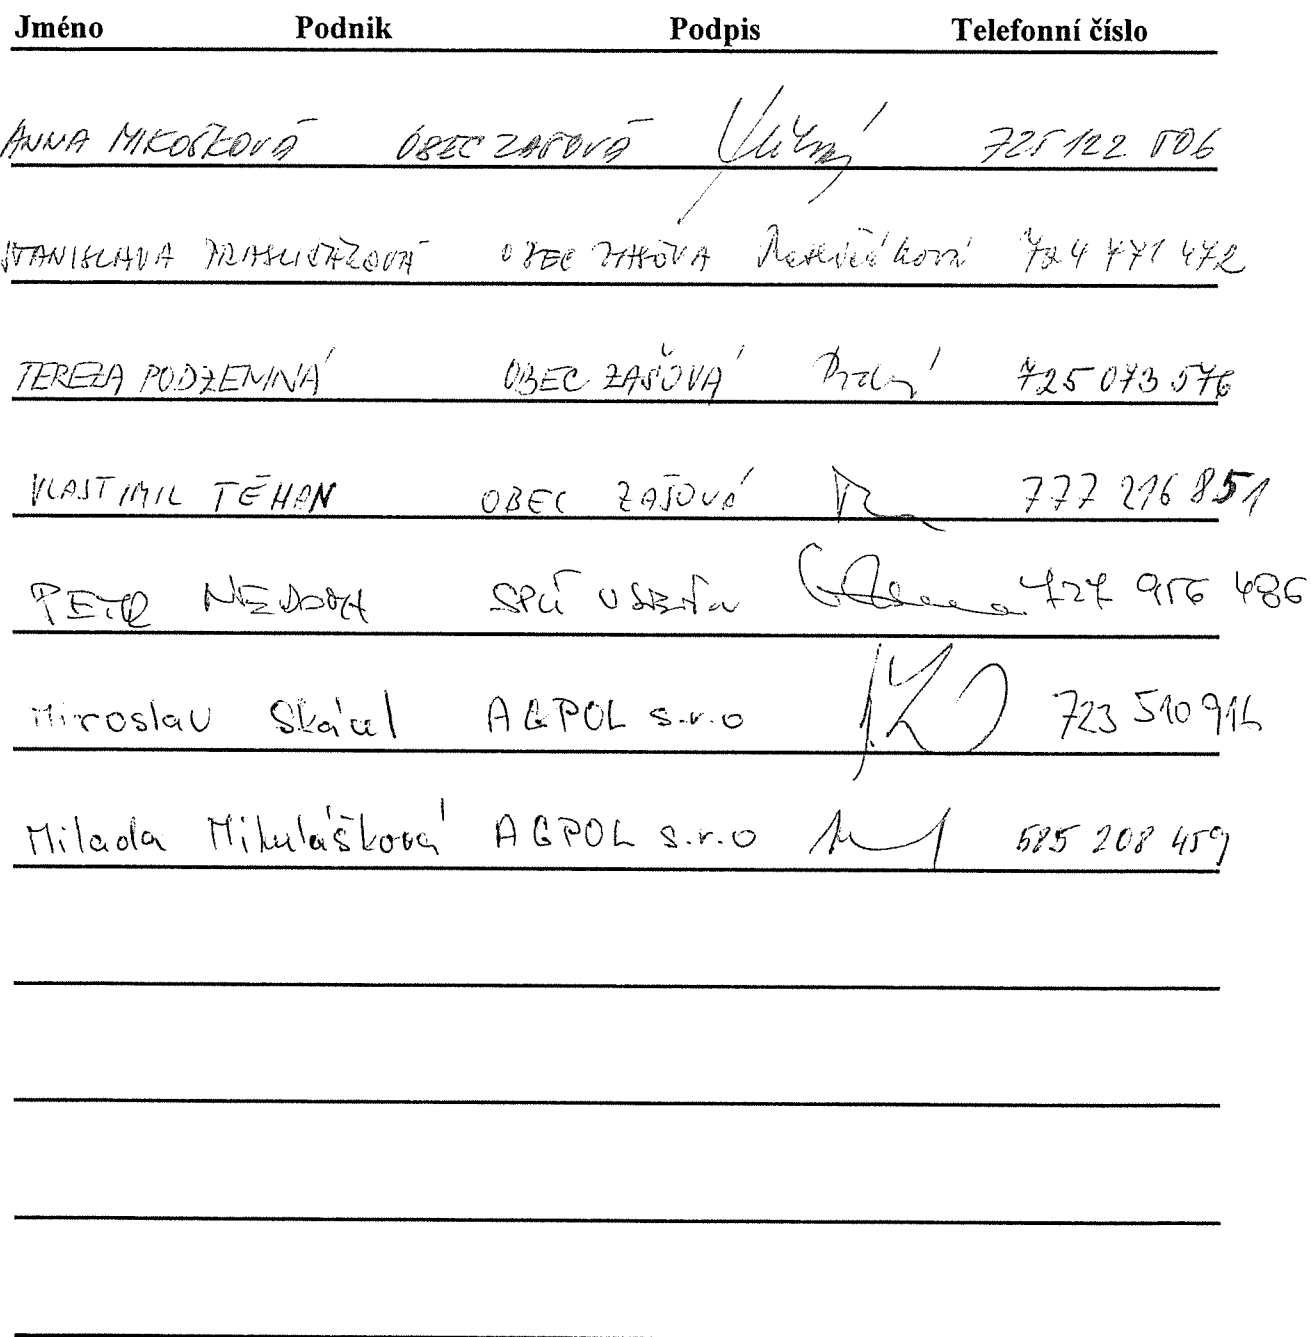 Jméno Podnik Podpis Telefonní číslo
ANNA MIKOŠKOVÁ OBEC ZAŠOVÁ 725 122 506
STANISLAVA OBEC ZAŠOVÁ 724 771 472
TEREZA PODZEMNÁ OBEC ZAŠOVÁ 725 073 576
VLASTIMIL TĚHAN OBEC ZAŠOVÁ 777 216 851
PETR NEDOMA SPÚ 727 956 486
Miroslav Skácel AGPOL s.r.o 723 510 916
Milada Mikulášková AGPOL s.r.o 585 208 459